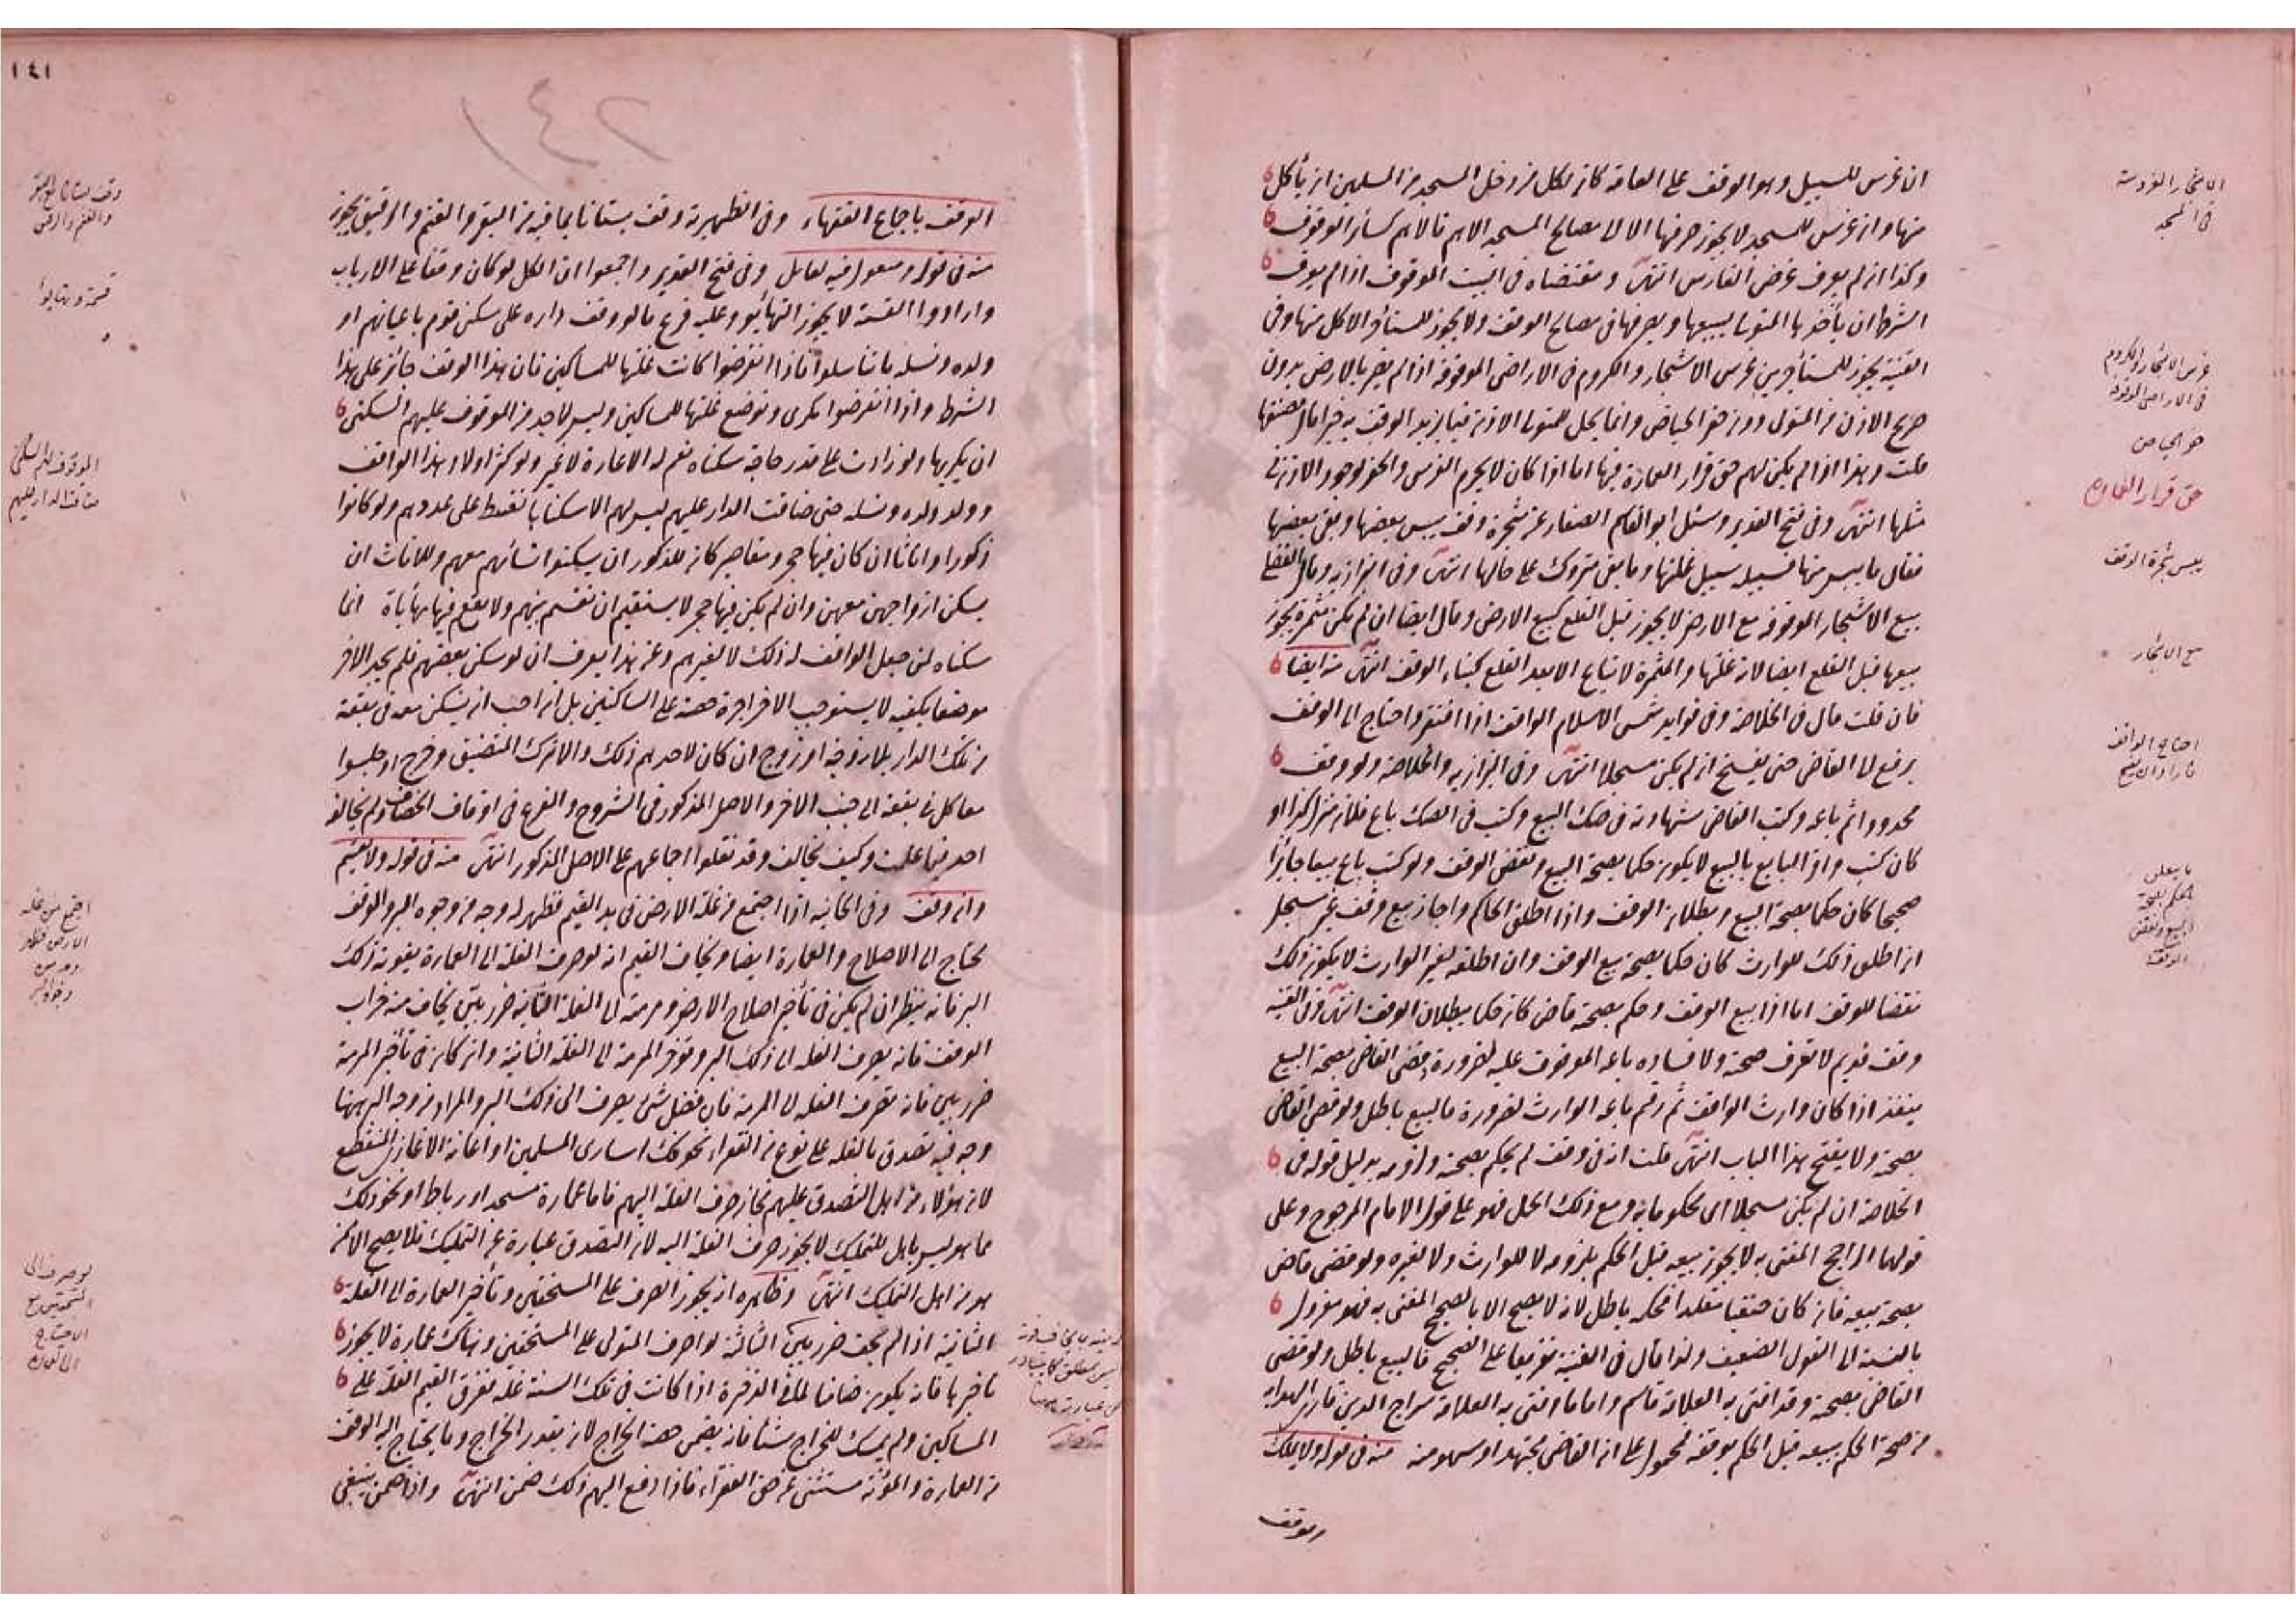 ان غرس للسبيل وهو الوقف على العامة كان لكل من دخل المسجد من المسلمين ان يأكل
منها وان غرس للمسجد لا يجوز صرفها الا الى مصالح المسجد الاهم فالاهم كسائر الوقوف
وكذا ان لم يعرف غرض الغارس انتهى ومقتضاه فى البيت الموقوف اذا لم يعرف
الشرط ان يأخذها المتولى ليبيعها ويصرفها فى مصالح الوقف ولا يجوز للمستأجر الاكل منها وفى
القنية يجوز للمستأجرين غرس الاشجار والكروم فى الاراضى الموقوفة اذا لم يضر بالارض بدون
صريح الاذن من المتولى دون حفر الحياض وانما يحل للمتولى الاذن فيما يزيد الوقف به خيرا قال مصنفها
قلت وهذا اذا لم يكن لهم حق قرار العمارة فيها اما اذا كان لا يحرم الغرس والحفر لوجود الاذن فى
مثلها انتهى وفى فتح القدير وسئل ابو القاسم الصفار عن شجرة وقف يبس بعضها وبقى بعضها
فقال ما يبس منها فسبيله سبيل غلتها وما بقى متروك على حالها انتهى وفى البزازية وقال الفضلى
بيع الاشجار الموقوفة مع الارض لا يجوز قبل القلع كبيع الارض وقال ايضا ان لم يكن مثمرة يجوز
بيعها قبل القلع ايضا لانه غلتها والمثمرة لا تباع الا بعد القلع كبناء الوقف انتهى منه ايضا
فان قلت قال فى الخلاصة وفى فوايد شمس الاسلام الواقف اذا افتقر واحتاج الى الوقف
يرفع الى القاضى حتى يفسخ ان لم يكن مسجلا انتهى وفى البزازية والخلاصة ولو وقف
محدودا ثم باعه وكتب القاضى شهادته فى صك البيع وكتب فى الصك باع فلان منزل كذا او
كان كتب واقر البايع بالبيع لا يكون حكما بصحة البيع ونقض الوقف ولو كتب باع بيعا جايزا
صحيحا كان حكما بصحة البيع وبطلان الوقف واذا اطلق الحاكم واجاز بيع وقف غير مسجل
ان اطلق ذلك للوارث كان حكما بصحة بيع الوقف وان اطلقه لغير الوارث لا يكون ذلك
نقضا للوقف اما اذا بيع الوقف وحكم بصحته قاض كان حكما ببطلان الوقف انتهى وفى القنية
وقف قديم لا تعرف صحته ولا فساده باعه الموقوف عليه لضرورة وقضى القاضى بصحة البيع
ينفذ اذا كان وارث الواقف ثم رقم باعه الوارث لضرورة فالبيع باطل ولو قضى القاضى
بصحته ولا يفتح هذا الباب انتهى قلت انه فى وقف لم يحكم بصحته ولزومه بدليل قوله فى
الخلاصة ان لم يكن مسجلا اى محكوما به ومع ذلك الحمل فهو على قول الامام المرجوح وعلى
قولهما الراجح المفتى به لا يجوز بيعه قبل الحكم بلزومه لا للوارث ولا لغيره ولو قضى قاض
بصحة بيعه فان كان حنفيا مقلدا فحكمه باطل لانه لا يصح الا بالصحيح المفتى به فهو معزول
بالنسبة الى القول الضعيف ولذا قال فى القنية تفريعا على الصحيح فالبيع باطل ولو قضى
القاضى بصحته وقد افتى به العلامة قاسم واما ما افتى به العلامة سراج الدين قارى الهداية
من صحة الحكم ببيعه قبل الحكم بوقفه فمحمول على ان القاضى مجتهد او سهو منه منه فى قوله ولا يملك
الاشجار المغروسة
فى المسجد
غرس الاشجار والكروم
فى الاراضى الموقوفة
حفر الحياض
حق قرار العمارة
يبس شجرة الوقف
بيع الاشجار
احتاج الواقف
١٤١
١٤٢
الوقف باجماع الفقهاء وفى الظهيرية وقف بستانا بما فيه من البقر والغنم والرقيق يجوز
منه فى قوله ومنقول فيه تعامل وفى فتح القدير واجمعوا ان الكل لو كان وقفا على الارباب
وارادوا القسمة لا يجوز التهايؤ وعليه فرع ما لو وقف داره على سكنى قوم باعيانهم او
ولده ونسله ما تناسلوا فاذا انقرضوا كانت غلتها للمساكين فان هذا الوقف جائز على هذا
الشرط واذا انقرضوا يكرى وتوضع غلتها للمساكين وليس لاحد من الموقوف عليهم السكنى
ان يكريها ولو زادت على قدر حاجة سكناه نعم له الاعارة لا غير ولو كثر اولاد هذا الواقف
وولد ولده ونسله حتى ضاقت الدار عليهم ليس لهم الا سكناها تقسط على عددهم ولو كانوا
ذكورا واناثا ان كان فيها حجر ومقاصير كان للذكور ان يسكنوا نسائهم معهم وللاناث ان
يسكن ازواجهن معهن وان لم يكن فيها حجر لا يستقيم ان تقسم بينهم ولا يقع فيها مهاياة انما
سكناه لمن جعل الواقف له ذلك لا لغيرهم وعن هذا يعرف ان لو سكن بعضهم فلم يجد الآخر
موضعا يكفيه لا يستوجب الآخر اجرة حصته على الساكنين بل ان احب ان يسكن معه فى بقعة
من تلك الدار بلا زوجة او زوج ان كان لاحدهم ذلك والا ترك المتضيق وخرج او جلسوا
معا كل فى بقعة الى جنب الآخر والاصل المذكور فى الشروح والفرع فى اوقاف الخصاف ولم يخالفه
احد فيما علمت وكيف يخالف وقد نقلوا اجماعهم على الاصل المذكور انتهى منه فى قوله ولا يقسم
وان وقف وفى الخانية اذا اجتمع من غلة الارض فى يد القيم فظهر له وجه من وجوه البر والوقف
يحتاج الى الاصلاح والعمارة ايضا ويخاف القيم انه لو صرف الغلة الى العمارة يفوته ذلك
البر فانه ينظر ان لم يكن فى تأخير اصلاح الارض ومرمته الى الغلة الثانية ضرر بين يخاف منه خراب
الوقف فانه يصرف الغلة الى ذلك البر وتؤخر المرمة الى الغلة الثانية وان كان فى تأخير المرمة
ضرر بين فانه تصرف الغلة الى المرمة فان فضل شئ يصرف الى ذلك البر والمراد من وجه البر ههنا
وجه فيه تصدق بالغلة على نوع من الفقراء نحو فك اسارى المسلمين او اعانة الاغازى المنقطع
لان هؤلاء من اهل التصدق عليهم فجاز صرف الغلة اليهم فاما عمارة مسجد او رباط او نحو ذلك
مما هو ليس باهل للتمليك لا يجوز صرف الغلة اليه لان التصدق عبارة عن التمليك فلا يصح الا ممن
هو من اهل التمليك انتهى وظاهره انه يجوز الصرف على المستحقين وتأخير العمارة الى الغلة
الثانية اذا لم يخف ضرر بين الثالثة لو صرف المتولى على المستحقين وهناك عمارة لا يجوز
تأخيرها فانه يكون ضامنا لما فى الذخيرة اذا كانت فى تلك السنة غلة ففرق القيم الغلة على
المساكين ولم يمسك للخراج شيئا فانه يضمن حصة الخراج لان بقدر الخراج وما يحتاج اليه الوقف
من العمارة والمؤنة مستثنى عن حق الفقراء فاذا دفع اليهم ذلك ضمن انتهى واذا ضمن ينبغى
والغنم والرقيق
الموقوف عليهم السكنى
ضاقت الدار عليهم
اجتمع من غلة